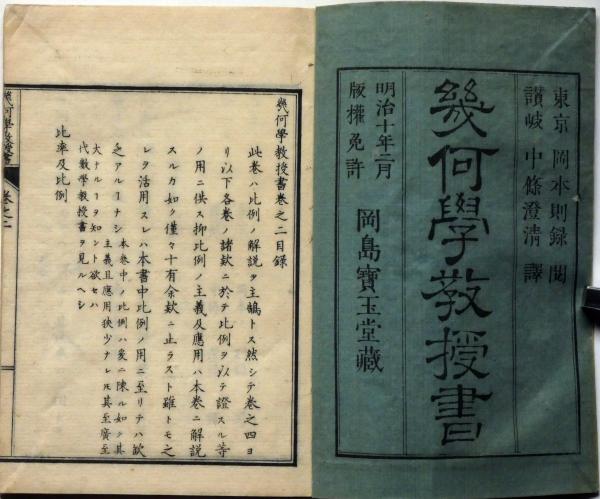 東京 岡本則録 閲
讃岐 中條澄清 譯
幾何學教授書
明治十年二月
版權免許
岡島寶玉堂藏
幾何學教授書卷之二目録
此卷ハ比例ノ解説ヲ主トス然シテ卷之四ヨ
リ以下各卷ノ諸欵ニ於テ比例ヲ以テ證スル等
ノ用ニ供ス抑比例ノ主義及應用ハ本卷ニ解説
スルカ如ク僅々十有餘欵ニ止ラスト雖トモ之
レヲ活用スレハ本書中比例ノ用ニ至リテハ欵
乏アルヿナシ 本卷中ノ比例ハ爰ニ陳ル如ク其
主義且應用狹少ナレ𪜈其至廣至
大ナルヿヲ知ント欲セハ
代數學教授書ヲ見ルヘシ
比率及比例
幾何學教授書
卷之二